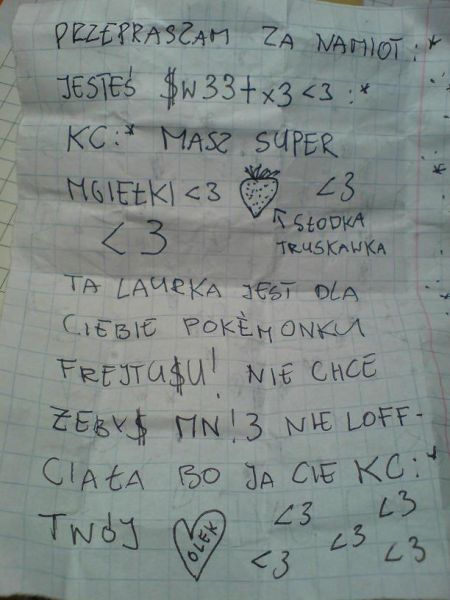 PRZEPRASZAM ZA NAMIOT :*
JESTEŚ $W33t x3 <3 :*
KC :* MASZ SUPER
MGIEŁKI <3 <3
<3 SŁODKA
TRUSKAWKA
TA LAURKA JEST DLA
CIEBIE POKÈMONKU
FREJTU$U! NIE CHCE
ŻEBY$ MN!3 NIE LOFF-
CIAŁA BO JA CIE KC :*
TWÓJ OLEK <3 <3 <3 <3 <3